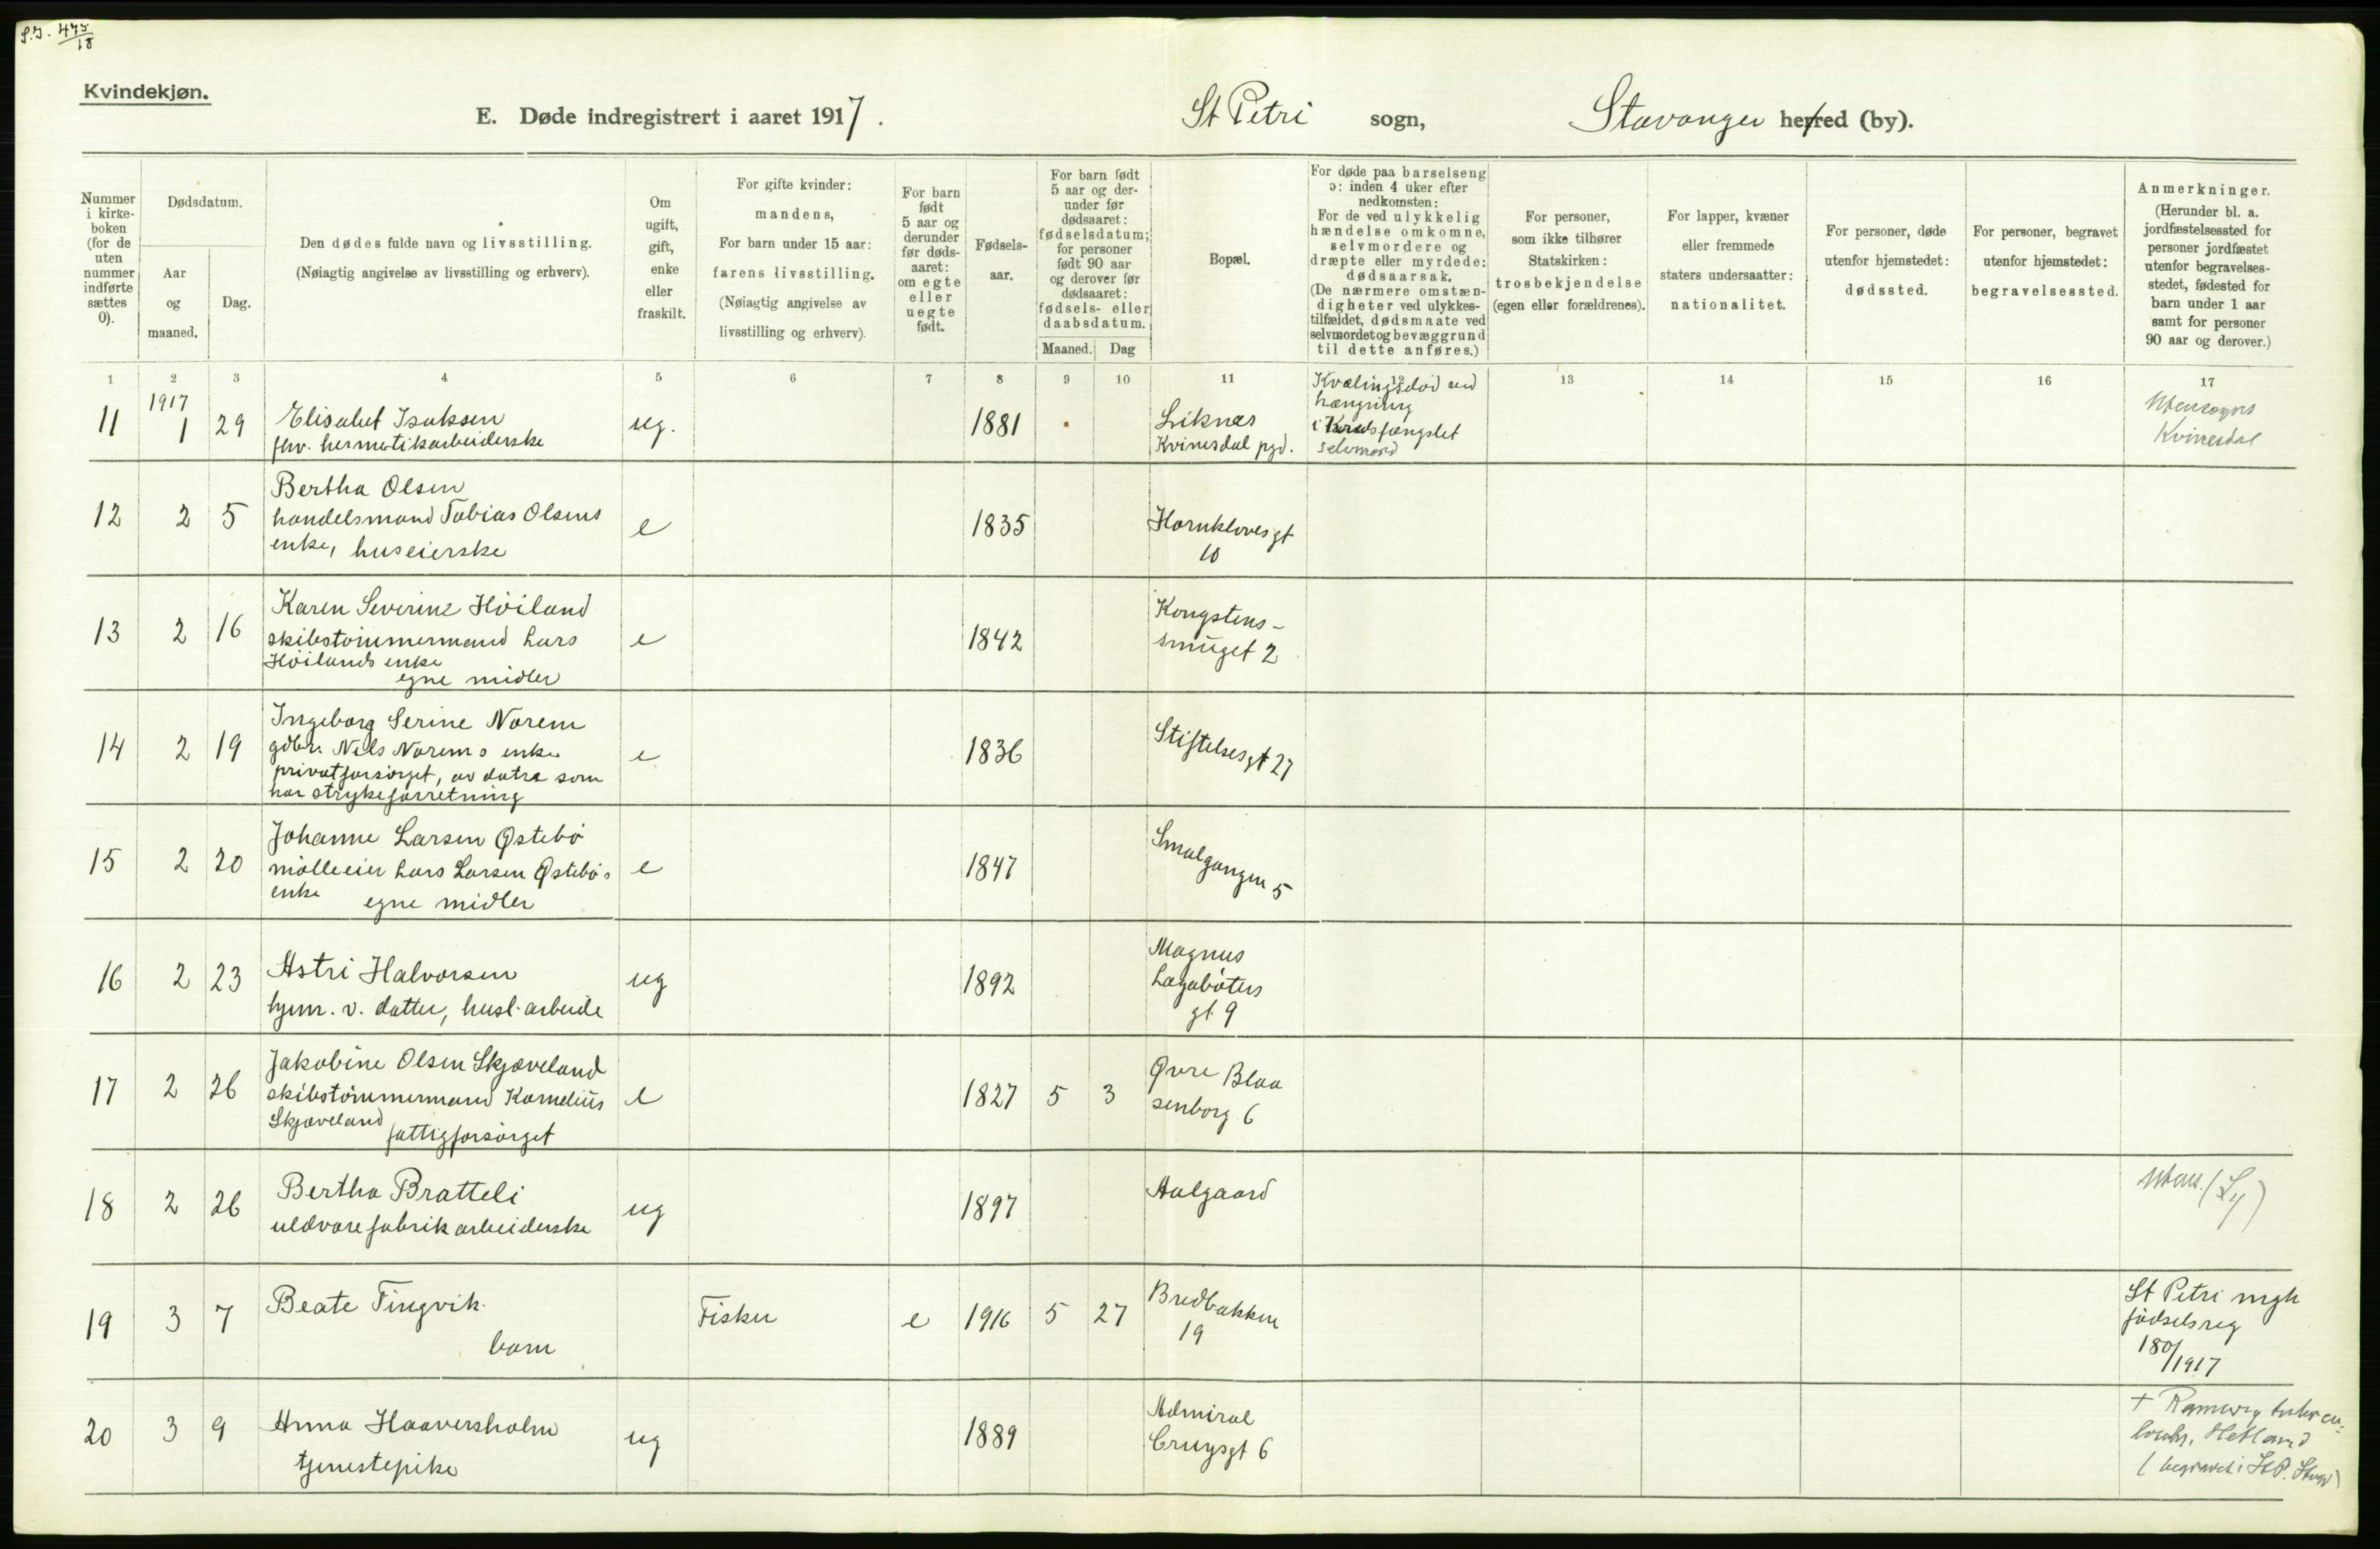 Kvindekjøn.
E. Døde indregistrert i aaret 1917.
St Petri sogn,
Stavanger herred (by).
Nummer i kirke- boken (for de uten nummer indførte sættes 0).
Dødsdatum.
Aar og maaned.
Dag.
Den dødes fulde navn og livsstilling.
(Nøiagtig angivelse av livsstilling og erhverv).
Om ugift, gift, enke eller fraskilt.
For gifte kvinder:
mandens,
For barn under 15 aar:
farens livsstilling.
(Nøiagtig angivelse av
livsstilling og erhverv).
For barn født 5 aar og derunder før døds- aaret: om egte eller uegte født.
Fødsels- aar.
For barn født 5 aar og der- under før dødsaaret: fødselsdatum; for personer født 90 aar og derover før dødsaaret: fødsels- eller daabsdatum.
Maaned. Dag
Bopæl.
For døde paa barselseng
ɔ: inden 4 uker efter
nedkomsten:
For de ved ulykkelig
hændelse omkomne,
selvmordere og
dræpte eller myrdede:
dødsaarsak.
(De nærmere omstæn-
digheter ved ulykkes-
tilfældet, dødsmaate ved
selvmordet og bevæggrund
til dette anføres.)
For personer,
som ikke tilhører
Statskirken:
trosbekjendelse
(egen eller forældrenes).
For lapper, kvæner
eller fremmede
staters undersaatter:
nationalitet.
For personer, døde
utenfor hjemstedet:
dødssted.
For personer, begravet
utenfor hjemstedet:
begravelsessted.
Anmerkninger.
(Herunder bl. a.
jordfæstelsessted for
personer jordfæstet
utenfor begravelses-
stedet, fødested for
barn under 1 aar
samt for personer
90 aar og derover.)
1 2 3 4 5 6 7 8 9 10 11 12 13 14 15 16 17
1917
11 1 29 Elisabet Isaksen ug. 1881 Liknes
fhv. hermetikarbeiderske Kvinesdal pgd.
Kvælingsdød ved
hængning
i Kredsfængslet
selvmord
Utensogns
Kvinesdal
12 2 5 Bertha Olsen
handelsmand Tobias Olsens
enke, huseierske
e 1835 Hornklovesgt
10
13 2 16 Karen Severine Höiland
skibstömmermand Lars
Höilands enke
egne midler
e 1842 Kongstens-
smuget 2
14 2 19 Ingeborg Serine Norem
gdbr. Nils Norems enke
privatforsörget, av datre som
har strykeforretning
e 1836 Stiftelsesgt 27
15 2 20 Johanne Larsen Østebö
mölleeier Lars Larsen Østebös
enke egne midler
e 1847 Smalgangen 5
16 2 23 Astri Halvorsen
hjem. v. datter, husl. arbeide
ug 1892 Magnus
Lagabøters
gt 9
17 2 26 Jakobine Olsen Skjæveland
skibstömmermand Kornelius
Skjæveland fattigforsörget
e 1827 5 3 Øvre Blaa
senborg 6
18 2 26 Bertha Bratteli
uldvarefabrikarbeiderske
ug 1897 Aalgaard
Utens.
19 3 7 Beate Tingvik.
barn
Fisker e 1916 5 27 Bredbakken
19
St Petri mgh
födselsreg
180/1917
20 3 9 Anna Haaversholm
tjenestepike
ug 1889 Admiral
Cruysgt 6
Hetland